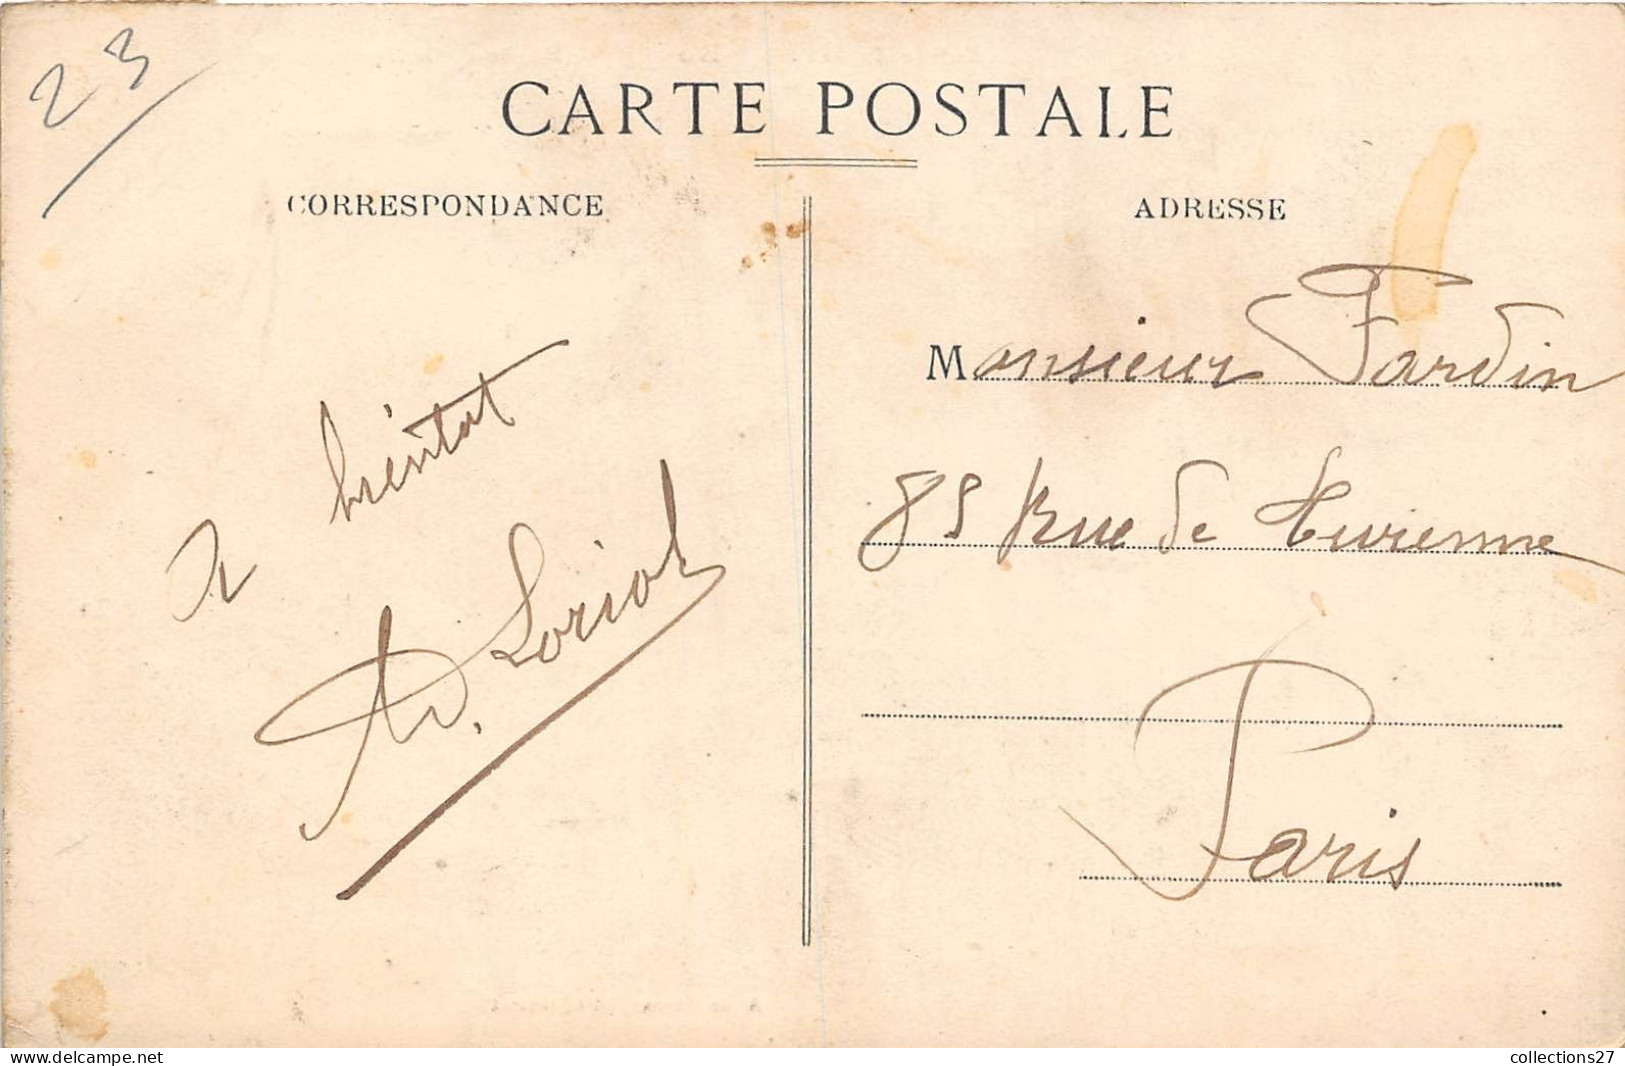 23
CARTE POSTALE
CORRESPONDANCE
ADRESSE
A bientot
Ad. Loriot
Monsieur Fardin
85 Rue de Turenne
Paris
collections27
www.delcampe.net